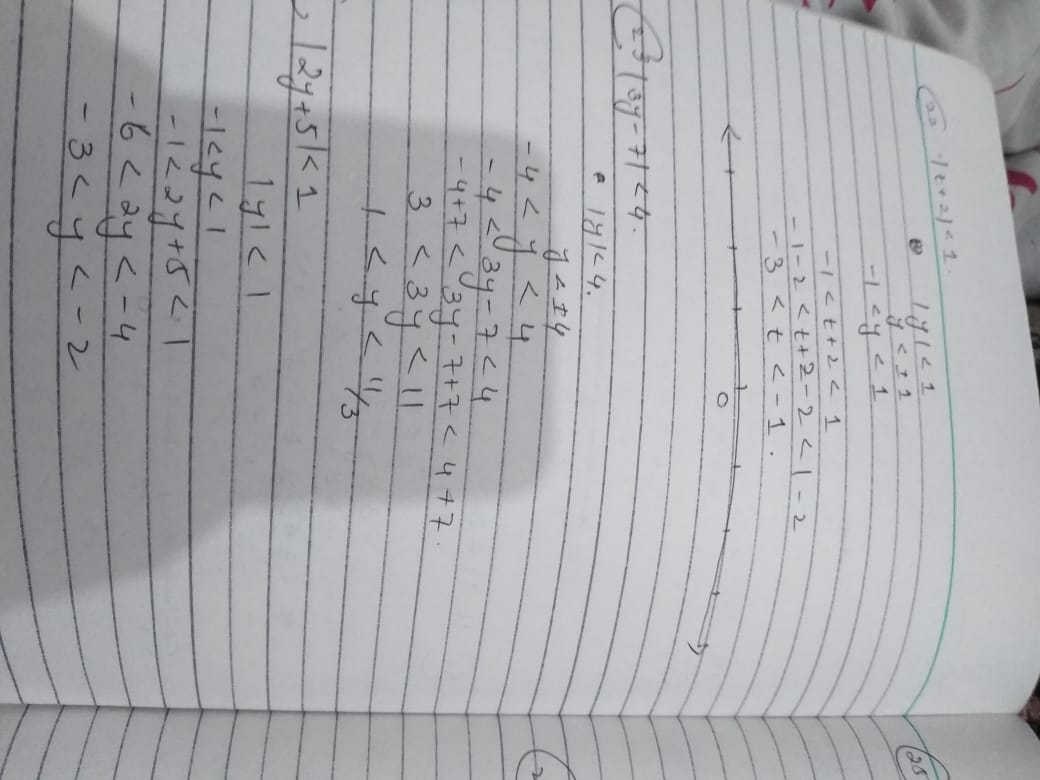 22 |t+2|<1.
|y|<1
y<±1
-1<y<1
-1<t+2<1
-1-2<t+2-2<1-2
-3<t<-1.
0
23 |3y-7|<4.
|y|<4.
y<±4
-4<y<4
-4<3y-7<4
-4+7<3y-7+7<4+7.
3<3y<11
1<y<11/3
|2y+5|<1
|y|<1
-1<y<1
-1<2y+5<1
-6<2y<-4
-3<y<-2
25